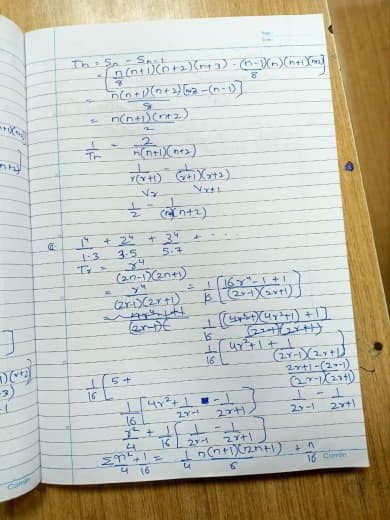 Tn = Sn - Sn-1
= [n/8 (n+1)(n+2)(n+3) - (n-1)(n)(n+1)(n+2)/8]
= n(n+1)(n+2)[n+3-(n-1)]/8
= n(n+1)(n+2)/2
1/Tn = 2/n(n+1)(n+2)
1/r(r+1) - 1/(r+1)(r+2)
Vr Vr+1
1/2 - 1/(n+1)(n+2)
Q. 1⁴/1.3 + 2⁴/3.5 + 3⁴/5.7 + ...
Tr = r⁴/(2n-1)(2n+1)
= r⁴/(2r-1)(2r+1) = 1/16 [16r⁴-1+1/(2r-1)(2r+1)]
1/16 [(4r²-1)(4r²+1)+1/(2r-1)(2r+1)]
1/16 [4r²+1+1/(2r-1)(2r+1)]
2r+1-(2r-1)
(2r-1)(2r+1)
1/16 [5+
1/16 [4r²+1/2r-1 - 1/2r+1] 1/2r-1 - 1/2r+1
r²/4 + 1/16 [1/2r-1 - 1/2r+1]
Σn²/4 + 1/16 = 1/4 n(n+1)(2n+1)/6 + n/16
Camlin